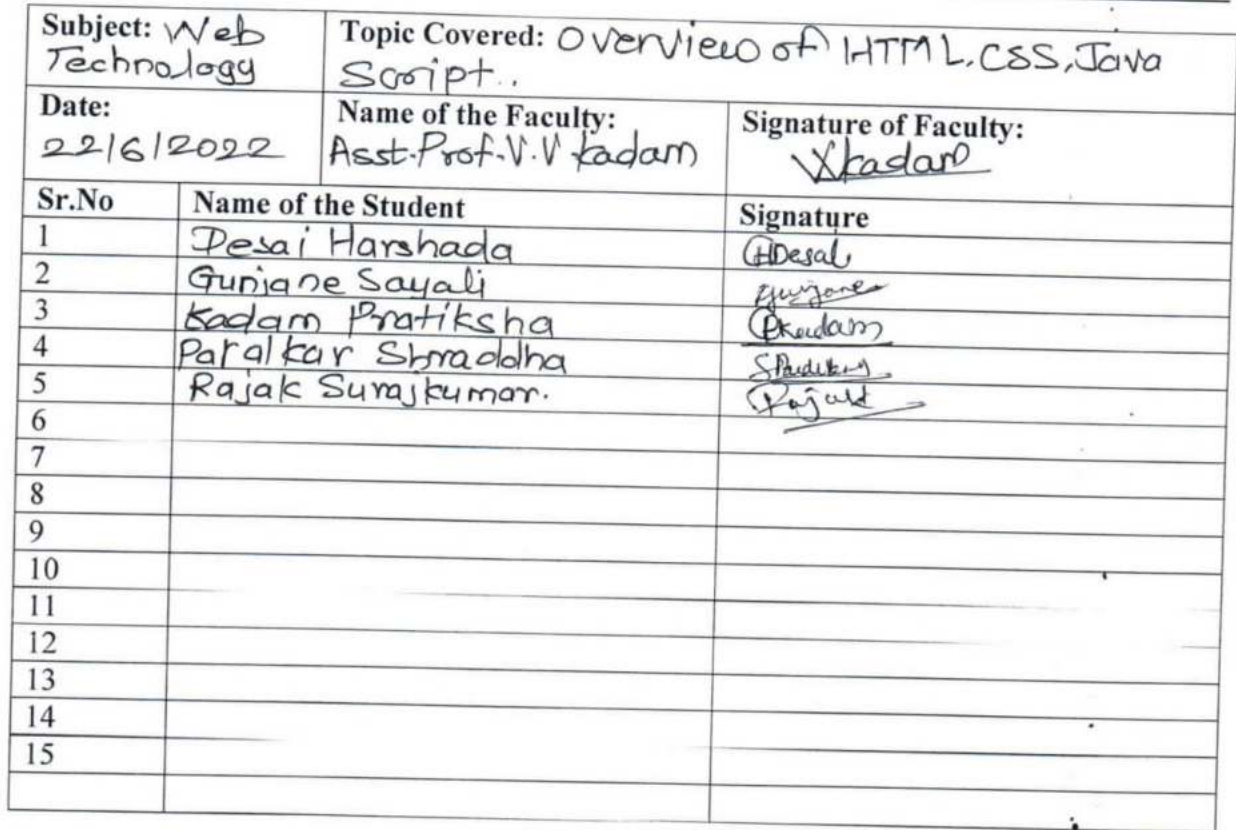 Subject: Web
Technology
Topic Covered: Overview of HTML, CSS, Java
Script..
Date:
22/6/2022
Name of the Faculty:
Asst. Prof. V. V Kadam
Signature of Faculty:
VKadam
Sr.No Name of the Student Signature
1 Desai Harshada HDesai
2 Gunjane Sayali Gunjane
3 Kadam Pratiksha PKadam
4 Paralkar Shraddha
5 Rajak Surajkumar. Rajak
6
7
8
9
10
11
12
13
14
15